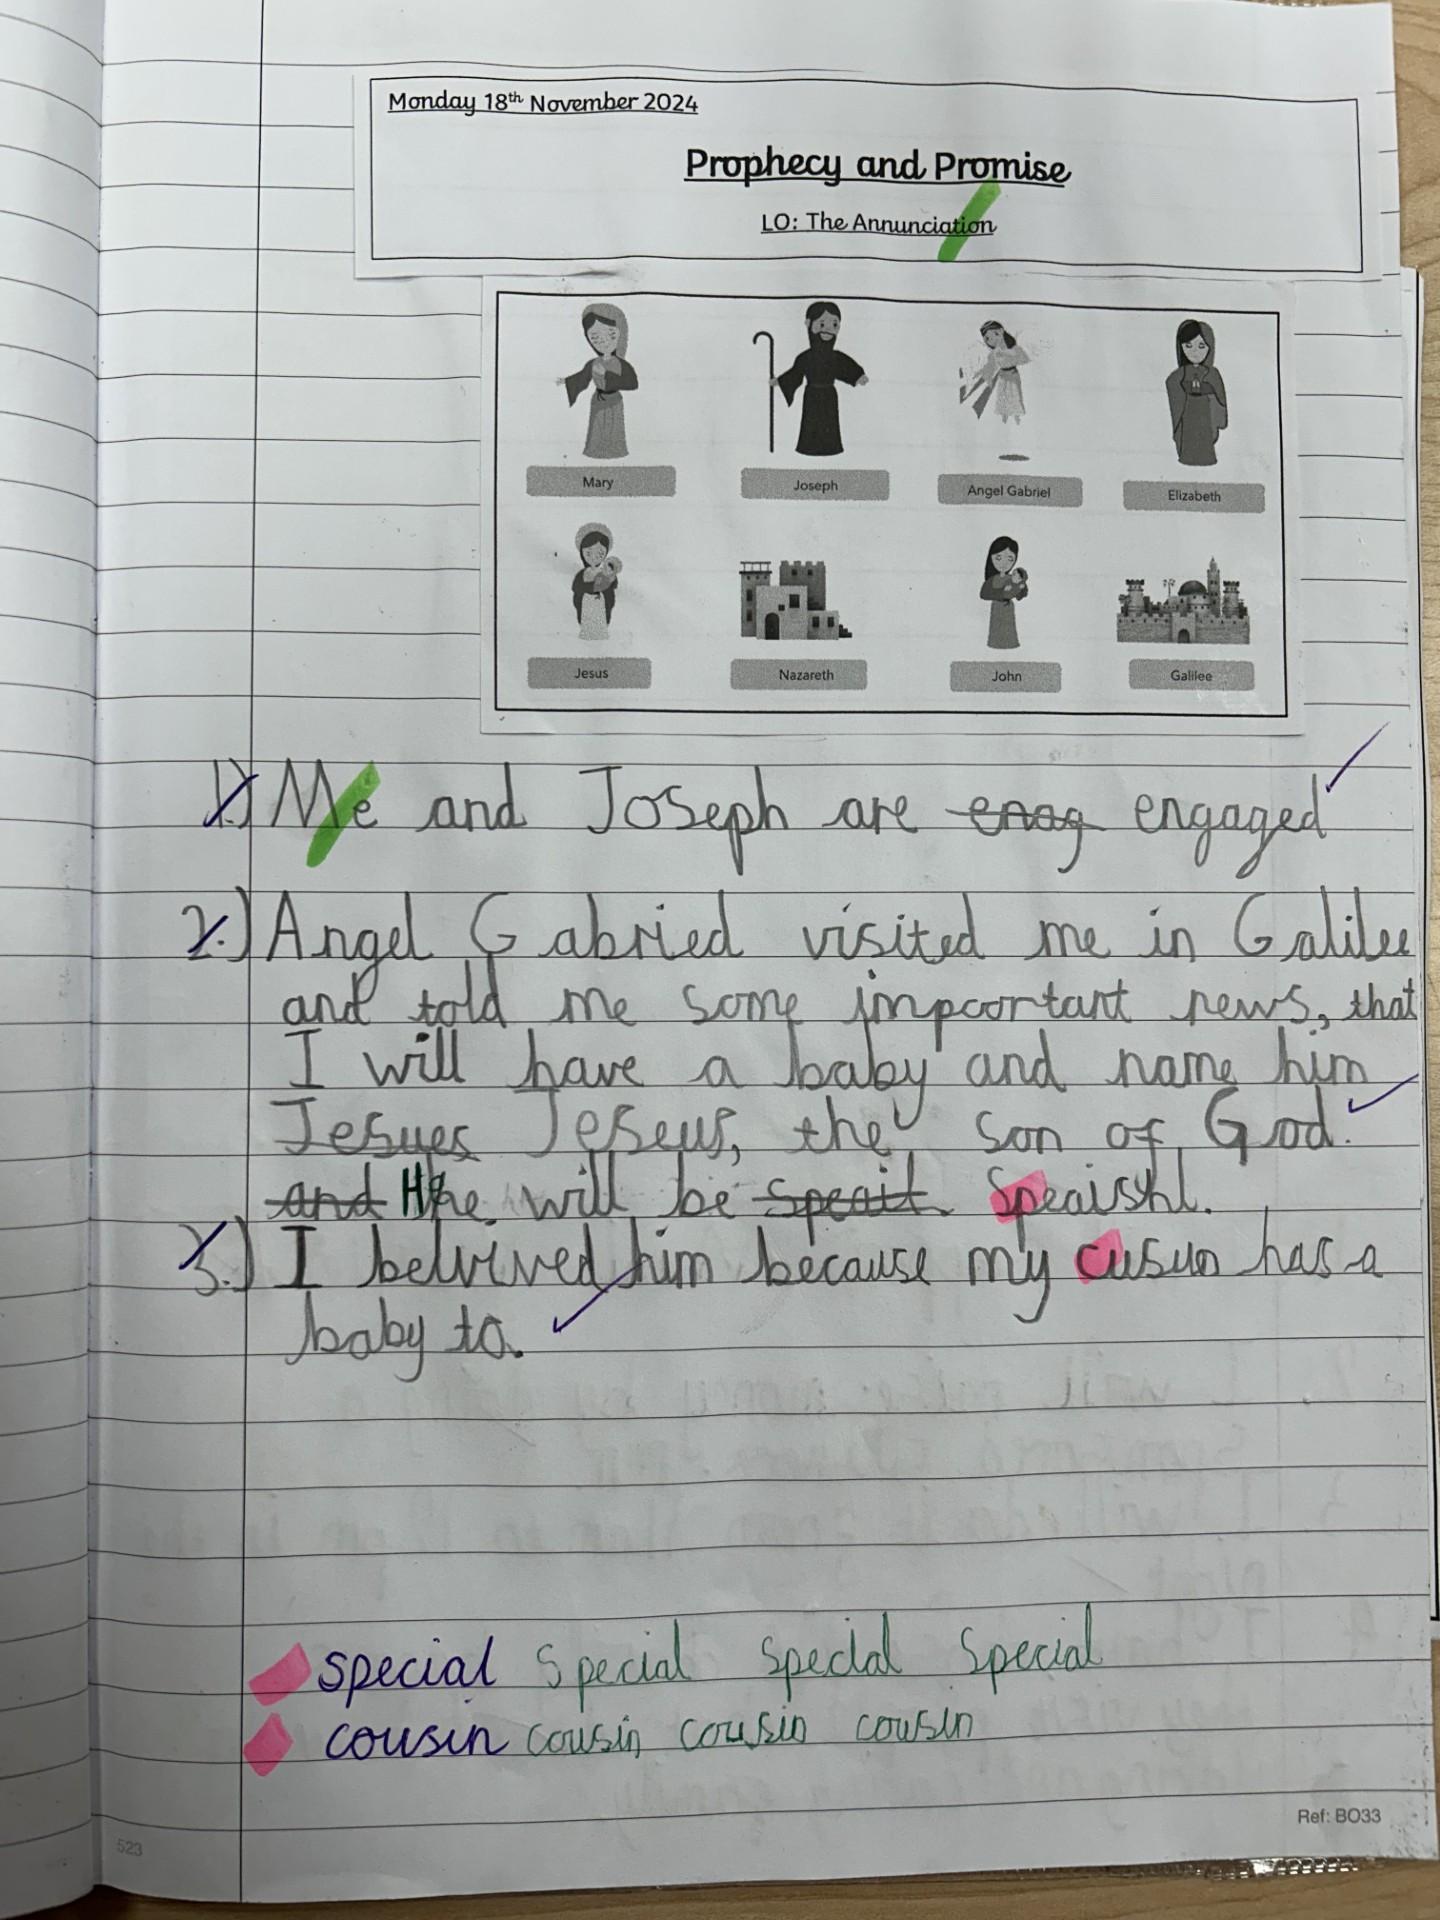 Monday 18th November 2024
Prophecy and Promise
LO: The Annunciation
Mary Joseph Angel Gabriel Elizabeth
Jesus Nazareth John Galilee
1.) Me and Joseph are enag engaged
2.) Angel Gabried visited me in Galilee
and told me some impoortant news, that
I will have a baby and name him
Jesues Jeseus, the son of God.
and He will be speait. Speaishl.
3.) I belvived him because my cusun has a
baby to.
special Special Special Special
cousin cousin cousin cousin
Ref: BO33
523